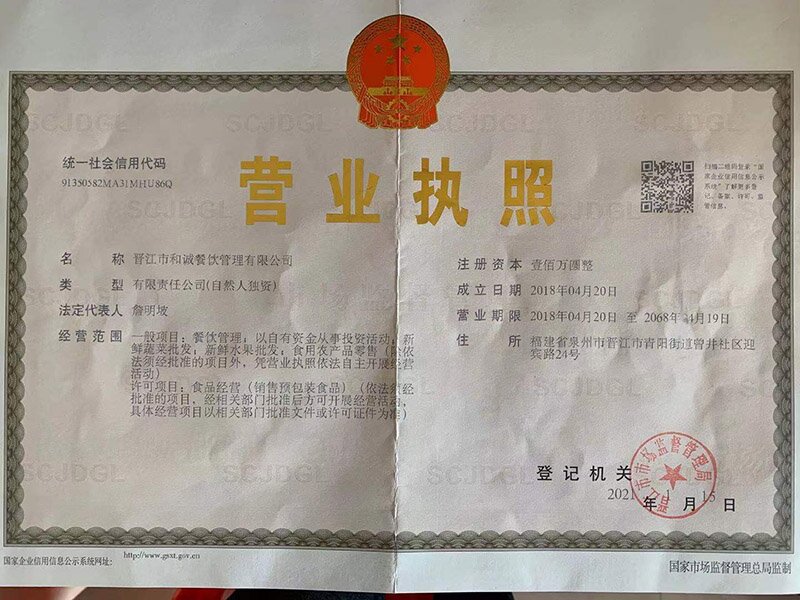 统一社会信用代码
91350582MA31MHU86Q
营业执照
扫描二维码登录“国
家企业信用信息公示
系统”了解更多登
记、备案、许可、监
管信息。
名 称 晋江市和诚餐饮管理有限公司
类 型 有限责任公司(自然人独资)
法定代表人 詹明坡
经营范围 一般项目：餐饮管理；以自有资金从事投资活动；新
鲜蔬菜批发；新鲜水果批发；食用农产品零售（除依
法须经批准的项目外，凭营业执照依法自主开展经营
活动）
许可项目：食品经营（销售预包装食品）（依法须经
批准的项目，经相关部门批准后方可开展经营活动，
具体经营项目以相关部门批准文件或许可证件为准）
注册资本 壹佰万圆整
成立日期 2018年04月20日
营业期限 2018年04月20日 至 2068年04月19日
住 所 福建省泉州市晋江市青阳街道曾井社区迎
宾路24号
登记机关
晋江市市场监督管理局
2021年1月15日
国家企业信用信息公示系统网址：
http://www.gsxt.gov.cn
国家市场监督管理总局监制
SCJDGL
SCJDGL
SCJDGL
SCJDGL
SCJDGL
SCJDGL
SCJDGL
SCJDGL